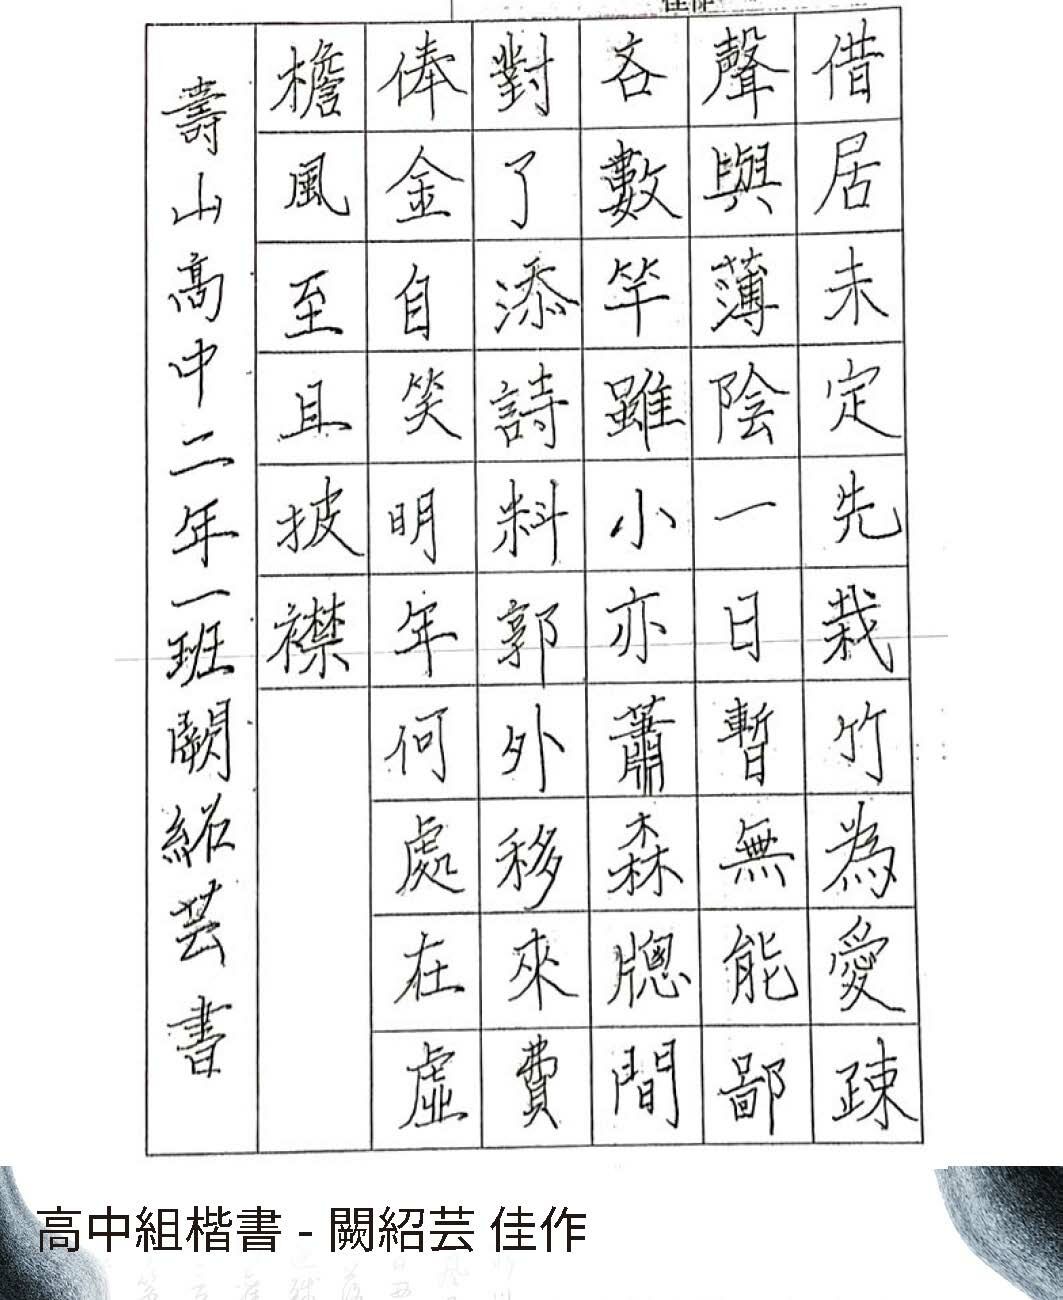 借居未定先栽竹為愛疎
聲與薄陰一日暫無能鄙
吝數竿雖小亦蕭森牕間
對了添詩料郭外移來費
俸金自笑明年何處在虛
檐風至且披襟
壽山高中二年一班闕紹芸書
高中組楷書 - 闕紹芸 佳作